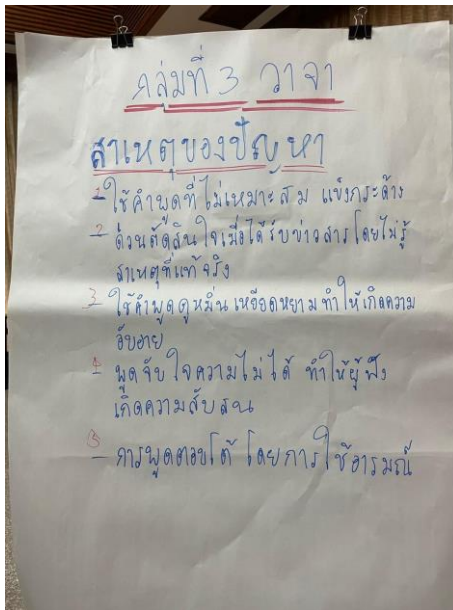 กลุ่มที่ 3 วาจา
สาเหตุของปัญหา
1- ใช้คำพูดที่ไม่เหมาะสม แข็งกระด้าง
2- ด่วนตัดสินใจเมื่อได้รับข่าวสารโดยไม่รู้
สาเหตุที่แท้จริง
3- ใช้คำพูดดูหมิ่น เหยียดหยาม ทำให้เกิดความ
อับอาย
4- พูดจับใจความไม่ได้ ทำให้ผู้ฟัง
เกิดความสับสน
5- การพูดตอบโต้ โดยการใช้อารมณ์